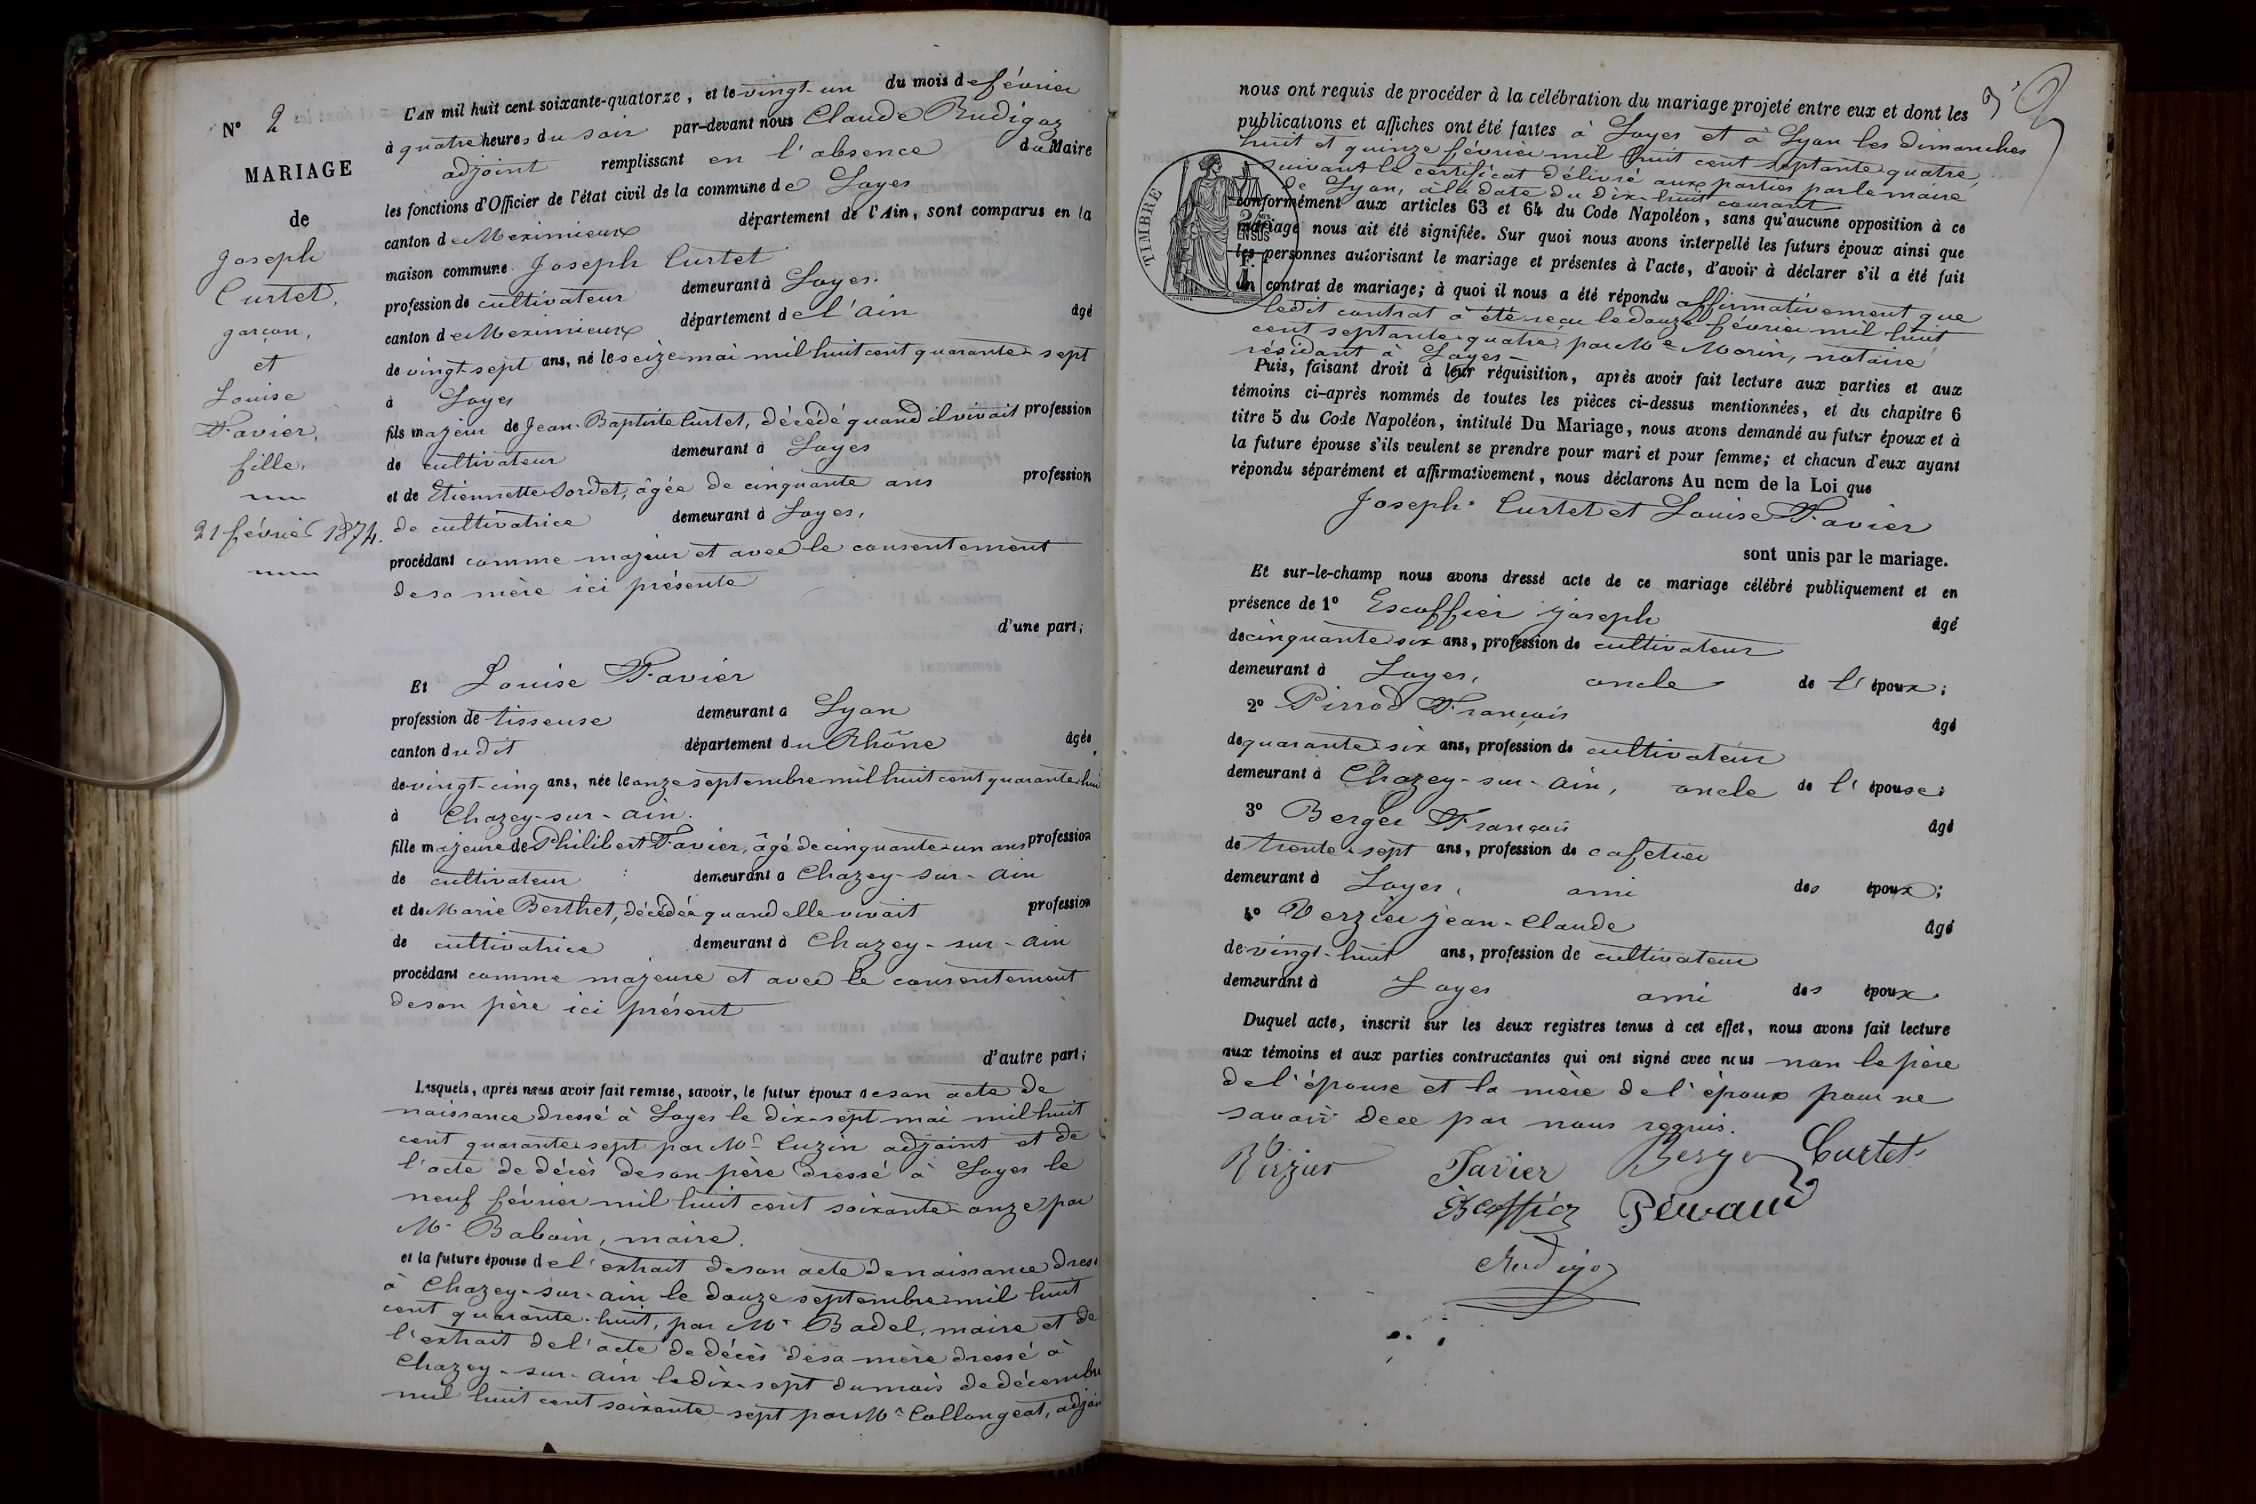 N° 2
MARIAGE
de
Joseph
Curtet,
garçon,
et
Louise
Favier,
fille.
21 février 1874.
L'AN mil huit cent soixante-quatorze, et le vingt-un du mois de février
à quatre heures du soir par-devant nous Claude Rudigoz
adjoint remplissant en l'absence du Maire
les fonctions d'Officier de l'état civil de la commune de Loyes
canton de Meximieux département de l'Ain, sont comparus en la
maison commune Joseph Curtet
profession de cultivateur demeurant à Loyes.
canton de Meximieux département de l'Ain âgé
de vingt-sept ans, né le seize mai mil huit cent quarante-sept
à Loyes
fils majeur de Jean-Baptiste Curtet, décédé quand il vivait profession
de cultivateur demeurant à Loyes
et de Etiennette Sordet, âgée de cinquante ans profession
de cultivatrice demeurant à Loyes,
procédant comme majeur et avec le consentement
de sa mère ici présente
d'une part;
Et Louise Favier
profession de tisseuse demeurant à Lyon
canton dudit département du Rhône âgée
de vingt-cinq ans, née le onze septembre mil huit cent quarante-hui
à Chazey-sur-Ain.
fille majeure de Philibert Favier, âgé de cinquante-un ans profession
de cultivateur demeurant à Chazey-sur-Ain
et de Marie Berthet, décédée quand elle vivait profession
de cultivatrice demeurant à Chazey-sur-Ain
procédant comme majeure et avec le consentement
de son père ici présent
d'autre part;
Lesquels, après nous avoir fait remise, savoir, le futur époux de son acte de
naissance dressé à Loyes le dix-sept mai mil huit
cent quarante-sept par Mr Cuzin adjoint et de
l'acte de décès de son père dressé à Loyes le
neuf février mil huit cent soixante-onze par
Mr Baboin, maire.
et la future épouse de l'extrait de son acte de naissance dres
à Chazey-sur-Ain le douze septembre mil huit
cent quarante-huit, par Mr Badel, maire et de
l'extrait de l'acte de décès de sa mère dressé à
Chazey-sur-Ain le dix-sept du mois de décembre
mil huit cent soixante-sept par Mr Collongeat, adjoin
nous ont requis de procéder à la célébration du mariage projeté entre eux et dont les
publications et affiches ont été faites à Loyes et à Lyon les dimanches
huit et quinze février mil huit cent septante quatre,
suivant le certificat délivré aux parties par le maire
de Lyon, à la date du dix-huit courant
TIMBRE
conformément aux articles 63 et 64 du Code Napoléon, sans qu'aucune opposition à ce
mariage nous ait été signifiée. Sur quoi nous avons interpellé les futurs époux ainsi que
les personnes autorisant le mariage et présentes à l'acte, d'avoir à déclarer s'il a été fait
un contrat de mariage; à quoi il nous a été répondu affirmativement que
ledit contrat a été reçu le douze février mil huit
cent septante-quatre, par Me Morin, notaire
résidant à Loyes
Puis, faisant droit à leur réquisition, après avoir fait lecture aux parties et aux
témoins ci-après nommés de toutes les pièces ci-dessus mentionnées, et du chapitre 6
titre 5 du Code Napoléon, intitulé Du Mariage, nous avons demandé au futur époux et à
la future épouse s'ils veulent se prendre pour mari et pour femme; et chacun d'eux ayant
répondu séparément et affirmativement, nous déclarons Au nom de la Loi que
Joseph Curtet et Louise Favier
sont unis par le mariage.
Et sur-le-champ nous avons dressé acte de ce mariage célébré publiquement et en
présence de 1° Escoffier Joseph âgé
de cinquante six ans, profession de cultivateur
demeurant à Loyes, oncle de l'époux;
2° Pirrod François âgé
de quarante-six ans, profession de cultivateur
demeurant à Chazey-sur-Ain, oncle de l'épouse;
3° Berger François âgé
de trente-sept ans, profession de cafetier
demeurant à Loyes, ami des époux;
4° Verzier Jean-Claude âgé
de vingt-huit ans, profession de cultivateur
demeurant à Loyes ami des époux
Duquel acte, inscrit sur les deux registres tenus à cet effet, nous avons fait lecture
aux témoins et aux parties contractantes qui ont signé avec nous non le père
de l'épouse et la mère de l'époux pour ne
savoir de ce par nous requis.
Verzier Favier Berger Curtet
Escoffier
Rudigoz